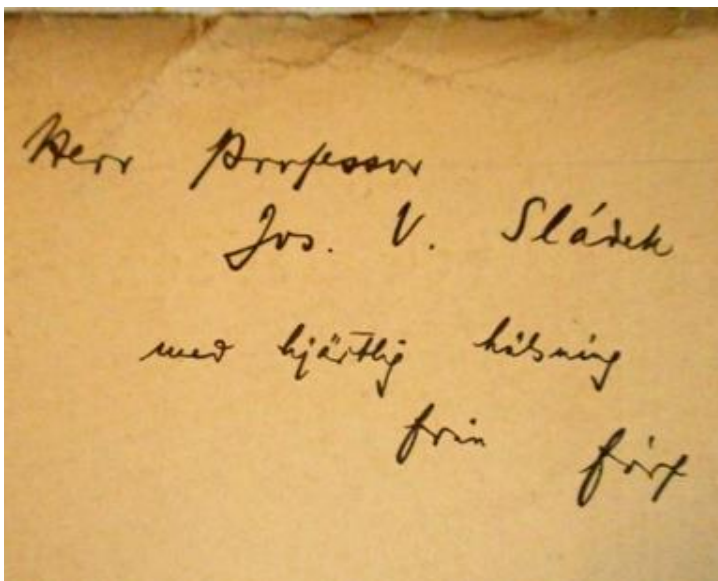 Herr Professor
Jos. V. Sládek
med hjärtlig hälsning
från förf